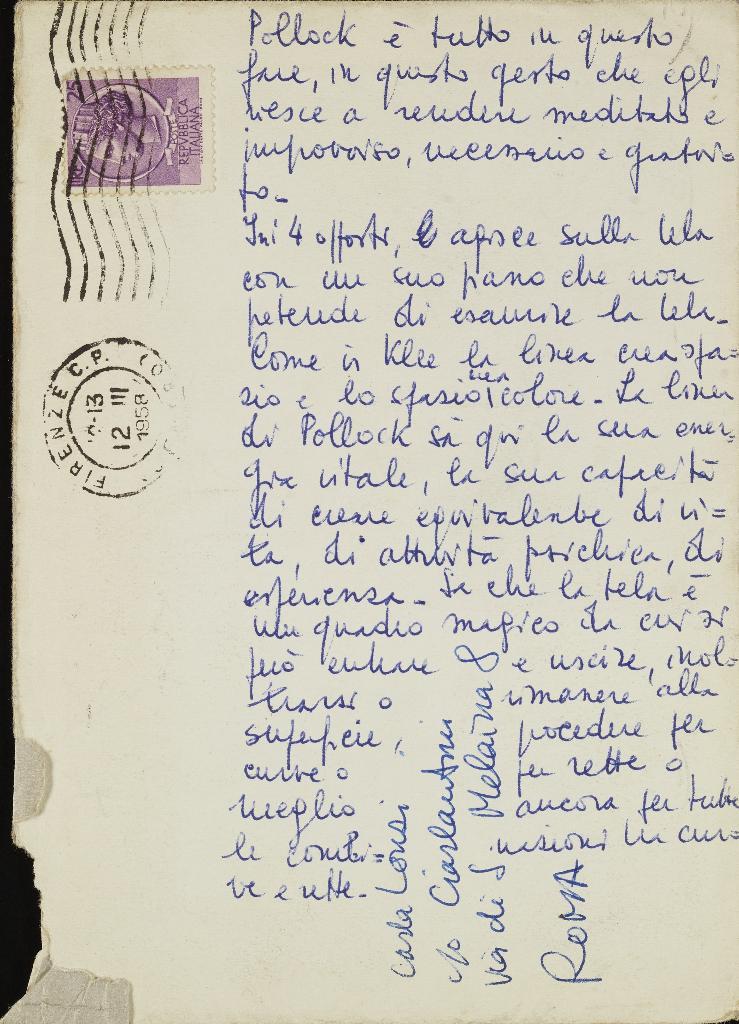 Pollock è tutto in questo
fare, in questo gesto che egli
riesce a rendere meditato e
improvviso, necessario e gratui-
to-
agisce sulla tela
con un suo piano che non
pretende di esaurire la tela-
Come in Klee la linea crea spa=
zio e lo spazio crea colore- La linea
di Pollock sa qui la sua ener-
gia vitale, la sua capacità
di creare equivalente di vi=
ta, di attività psichica, di
esperienza- Sa che la tela è
un quadro magico da cui si
può entrare e uscire, inol-
trarsi o rimanere alla
superficie, procedere per
curve o per rette o
meglio ancora per tutte
le combi= nazioni tra cur=
ve e rette-
Carla Lonzi
c/o
Via di S Melania 8
ROMA
REPVBBLICA
ITALIANA
FIRENZE C.P.
-13
12 III
1958